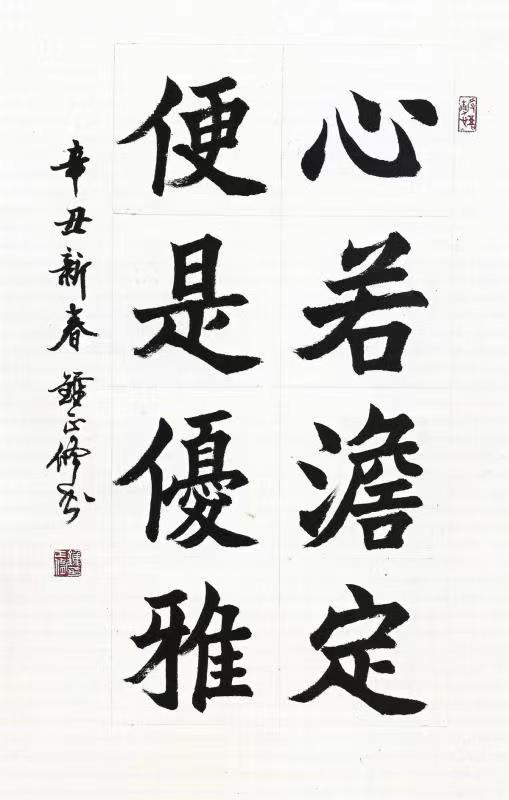 心若澹定
便是優雅
辛丑新春鍾正修书